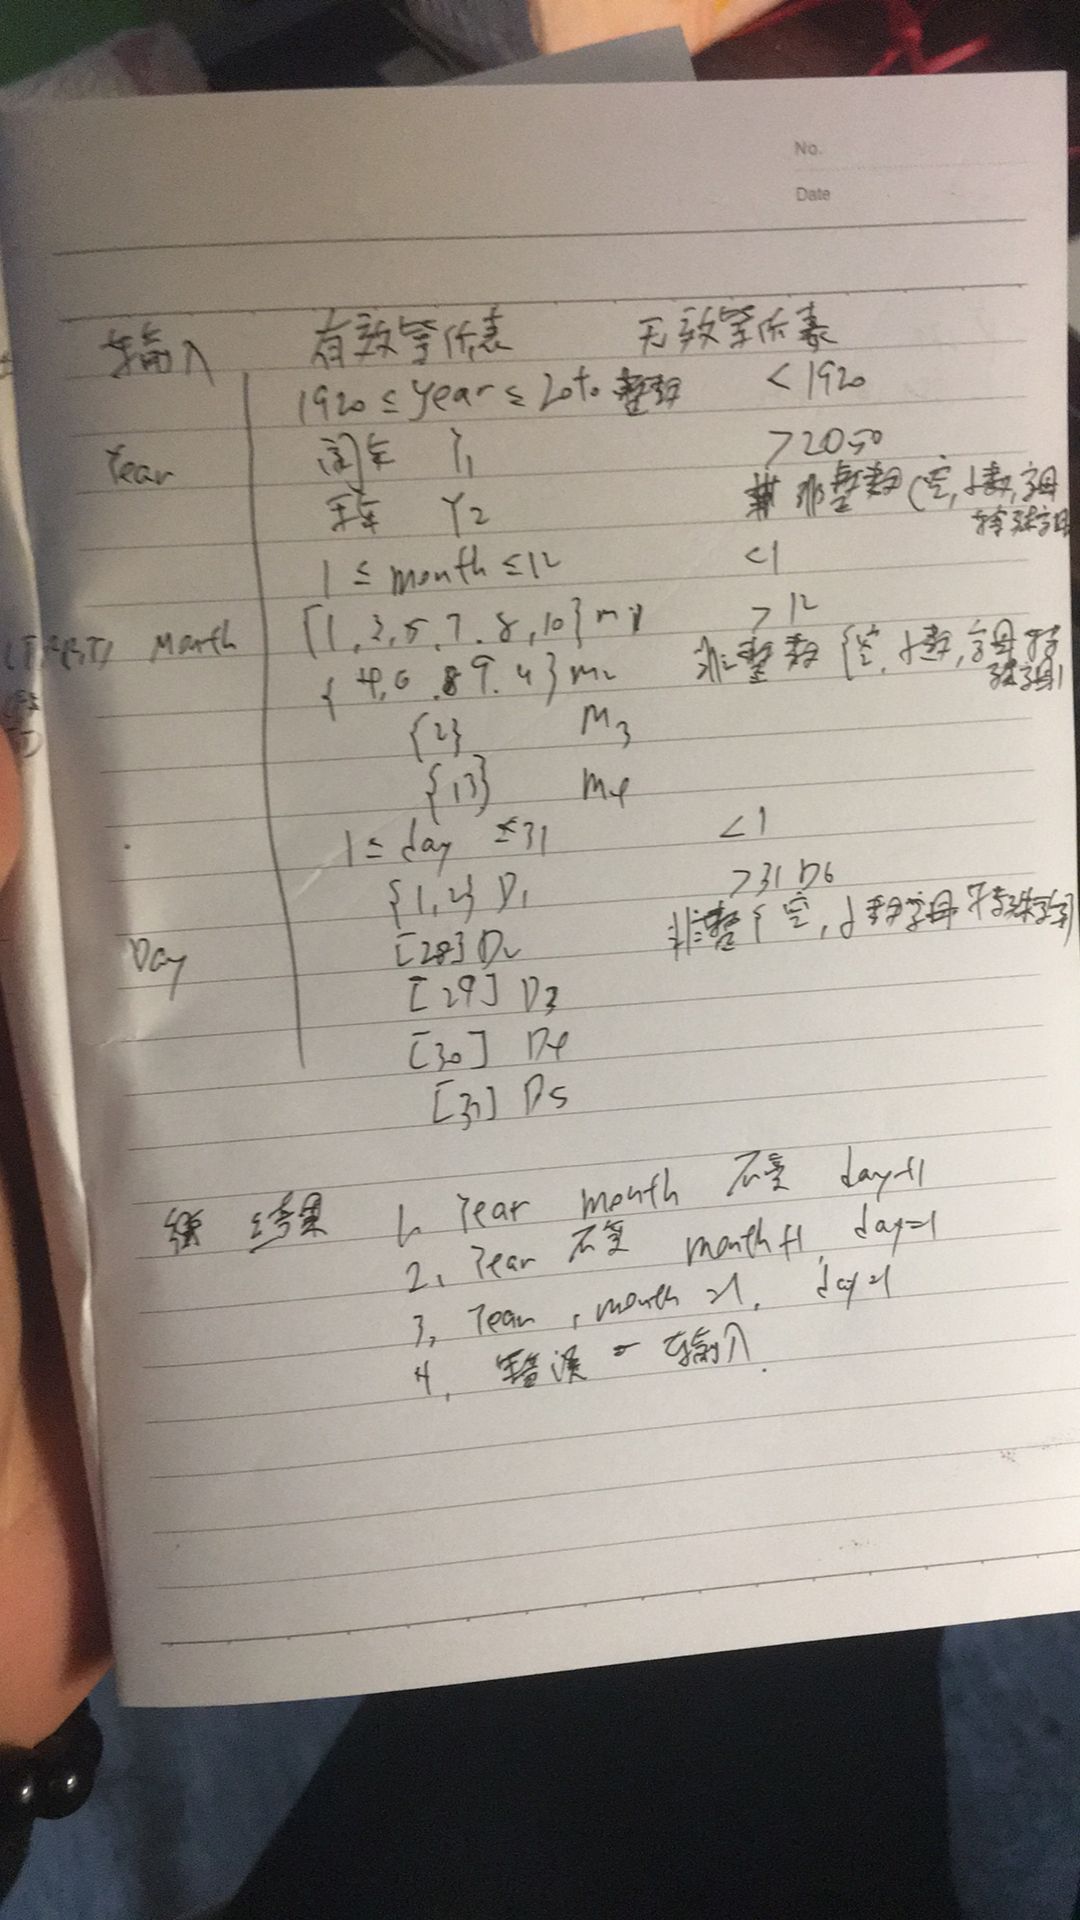 No.
Date
输入 有效等价表 无效等价表
1920 ≤ year ≤ 2050 整数 < 1920
Year 闰年 Y1 > 2050
平年 Y2 非整数 (空, 小数, 字母
特殊字母
1 ≤ month ≤ 12 < 1
Month {1, 3, 5, 7, 8, 10} m1 > 12
{4, 6, 9, 11} m2 非整数 {空, 小数, 字母 特
殊字母}
{2} M3
{13} M4
1 ≤ day ≤ 31 < 1
{1, 2} D1 >31 D6
Day [28] D2 非整 {空, 小数字母
[29] D3
[30] D4
[31] D5
结果 1. Year month 不变 day+1
2. Year 不变 month+1, day=1
3. Year, month=1, day=1
4. 错误 输入.